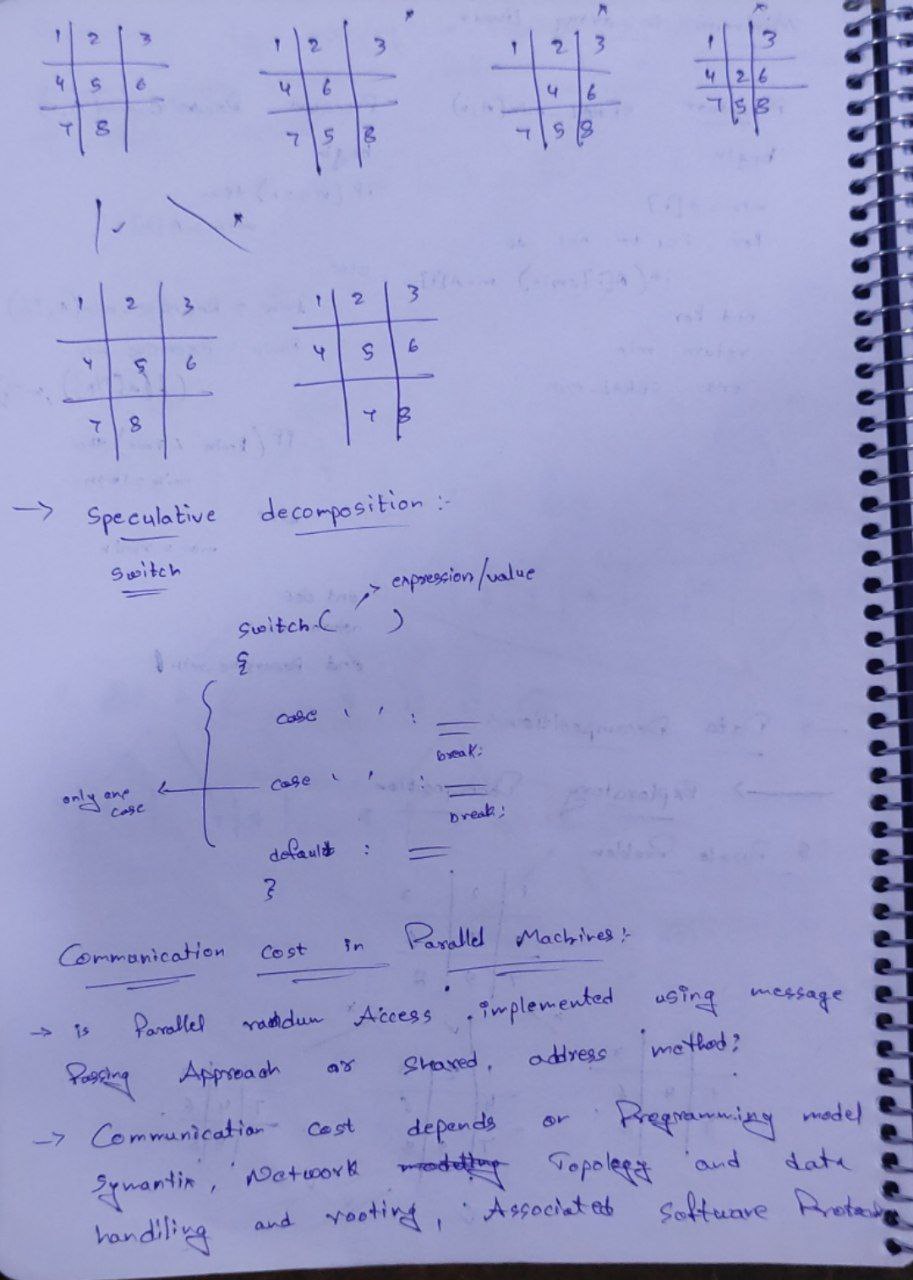 1 2 3
4 5 6
7 8
1 2 3
4 6
7 5 8
1 2 3
4 6
7 5 8
1 3
4 2 6
7 5 8
1 2 3
4 5 6
7 8
1 2 3
4 5 6
7 8
→ Speculative decomposition :-
Switch
expression/value
switch ( )
{
case ' ' :
break;
only one
case
case ' ' :
break;
default :
}
Communication cost in Parallel Machines :-
→ is Parallel Access implemented using message
Passing Approach or shared, address method?
→ Communication cost depends or Programming model
symantix, Network Topology and data
handiling and rooting, Associated Software